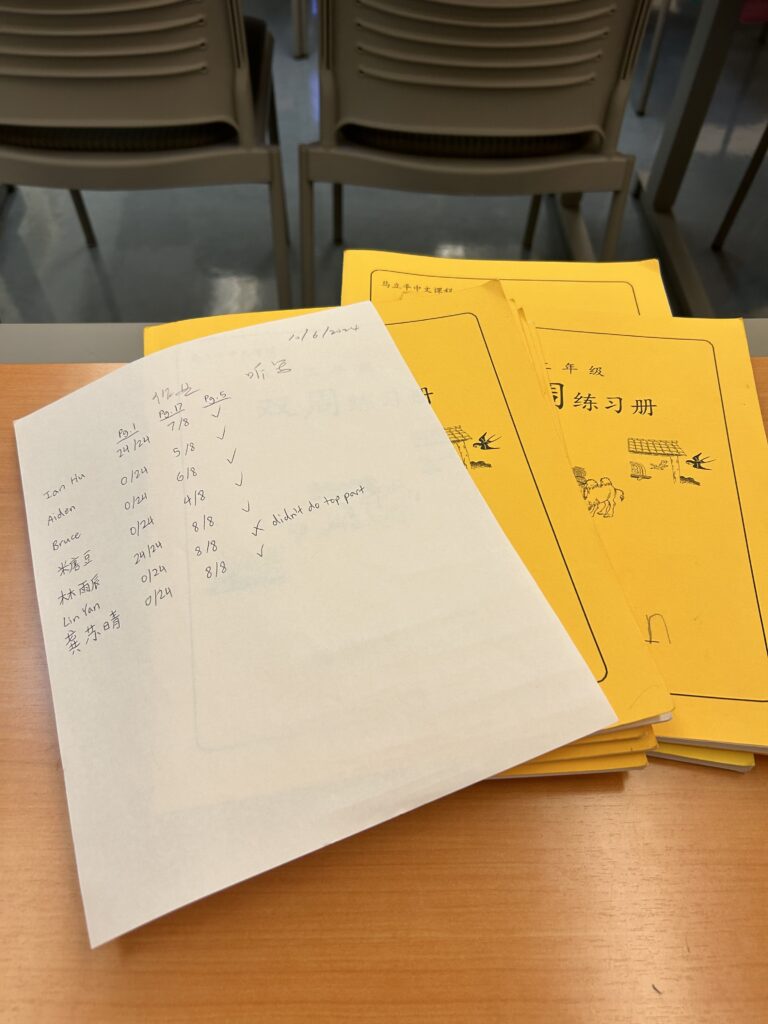 10/6/2024
作业 听写
Pg.1 Pg.17 Pg.5
Ian Hu 24/24 7/8 ✓
Aiden 0/24 5/8 ✓
Bruce 0/24 6/8 ✓
米唐豆 0/24 4/8 ✓
林雨辰 24/24 8/8 ✓
Lin Yan 0/24 8/8 ✗ didn't do top part
0/24 8/8 ✓
马立平中文课程
年级
周练习册